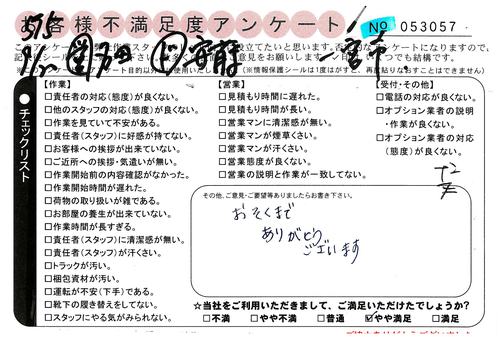 お客様不満足度アンケート
No 053057
●チェックリスト
【作業】
□責任者の対応(態度)が良くない。
□他のスタッフの対応(態度)が良くない。
□作業を見ていて不安がある。
□責任者(スタッフ)に好感が持てない。
□お客様への挨拶が出来ていない。
□ご近所への挨拶・気遣いが無い。
□作業開始前の内容確認がなかった。
□作業開始時間が遅れた。
□荷物の取り扱いが雑である。
□お部屋の養生が出来ていない。
□作業時間が長すぎる。
□責任者(スタッフ)に清潔感が無い。
□責任者(スタッフ)が汗くさい。
□トラックが汚い。
□梱包資材が汚い。
□運転が不安(下手)である。
□靴下の履き替えをしてない。
□スタッフにやる気がみられない。
【営業】
□見積もり時間に遅れた。
□見積もり時間が長い。
□営業マンに清潔感が無い。
□営業マンが煙草くさい。
□営業マンが汗くさい。
□営業態度が良くない。
□営業の説明と作業が一致してない。
【受付・その他】
□電話の対応が良くない。
□オプション業者の説明
・作業が良くない。
□オプション業者の対応
(態度)が良くない。
その他、ご意見・ご要望等ありましたらお書き下さい。
おそくまで
ありがとう
ございます
☆当社をご利用いただきまして、ご満足いただけたでしょうか?
□不満 □やや不満 □普通 ☑やや満足 □満足